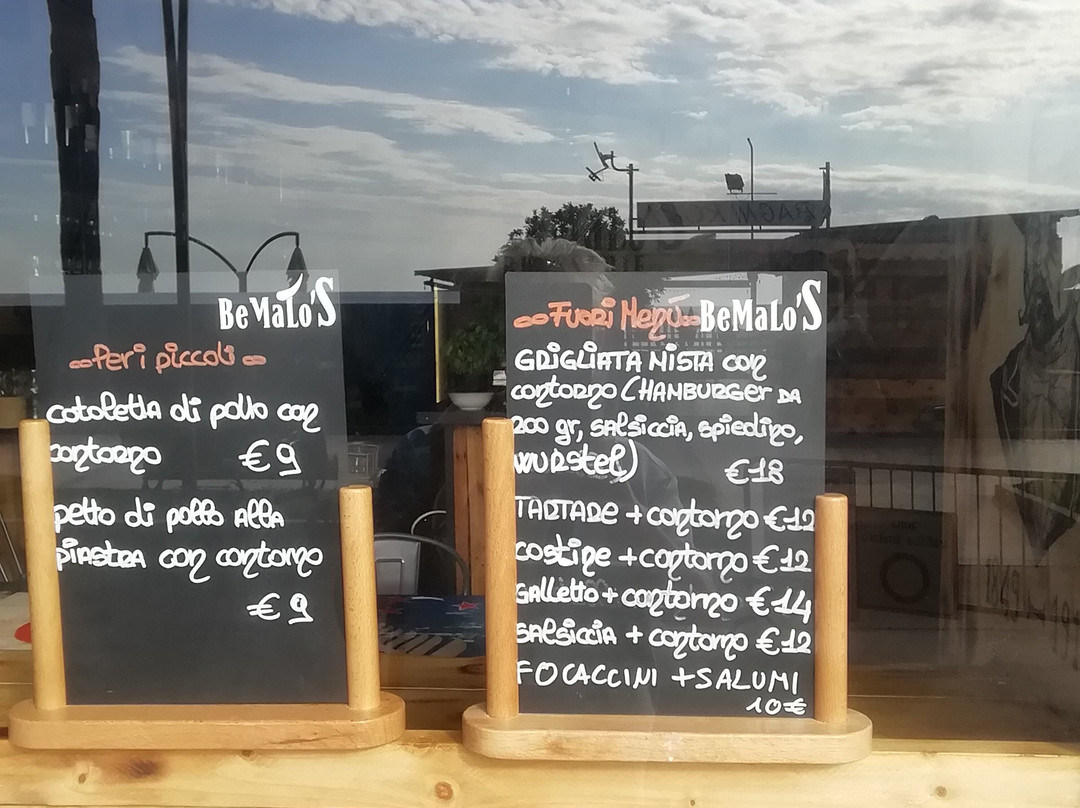 BeMaLo'S
Per i piccoli
cotoletta di pollo con
contorno €9
petto di pollo alla
piastra con contorno
€9
Fuori Menù BeMaLo'S
GRIGLIATA MISTA con
contorno (HAMBURGER DA
200 gr, salsiccia, spiedino,
wurstel) €18
TARTARE + contorno €12
costine + contorno €12
Galletto + contorno €14
salsiccia + contorno €12
FOCACCINI + SALUMI
10€